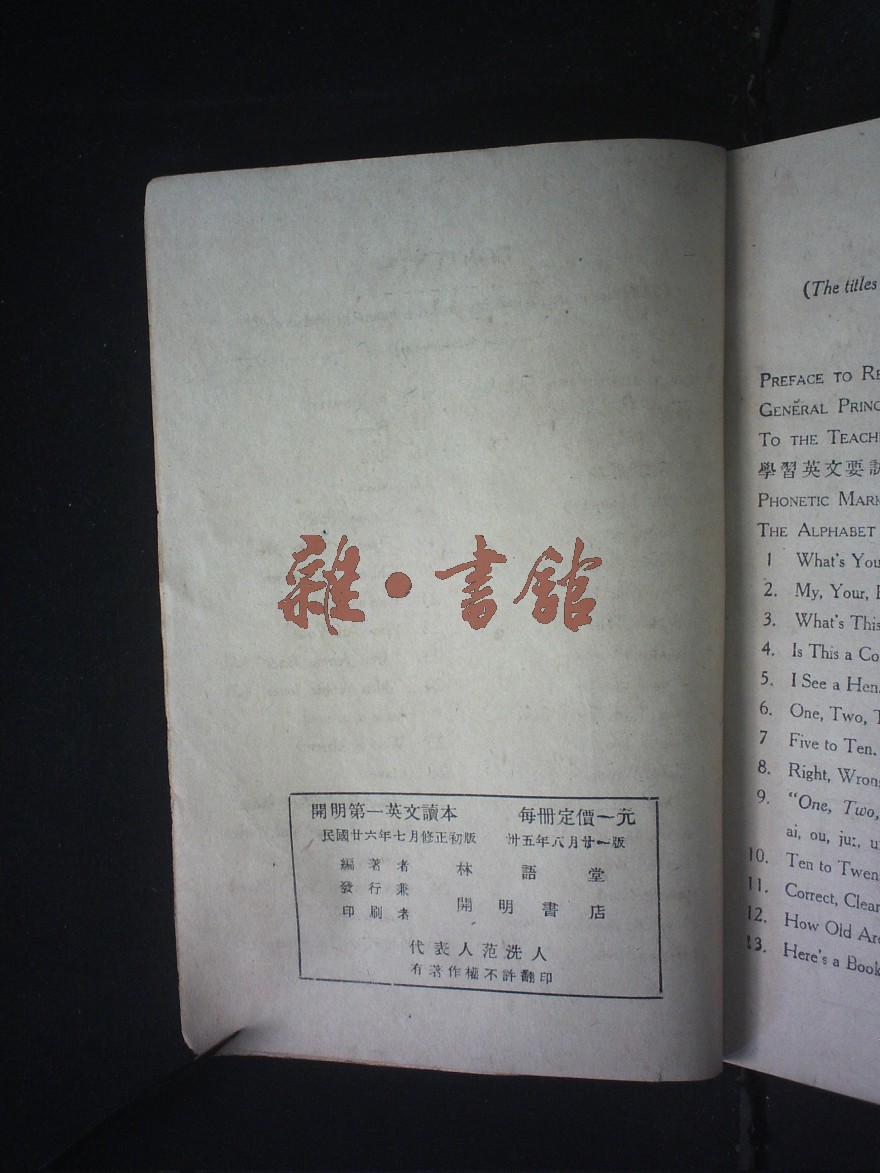 雜·書館
開明第一英文讀本 每冊定價一元
民國廿六年七月修正初版 卅五年八月廿一版
編著者 林語堂
發行兼
印刷者 開明書店
代表人范洗人
有著作權不許翻印
(The titles
PREFACE TO RE
GENERAL PRINC
TO THE TEACH
學習英文要訣
PHONETIC MARK
THE ALPHABET
1 What's You
2. My, Your,
3. What's This
4. Is This a Co
5. I See a Hen.
6. One, Two, T
7 Five to Ten.
8. Right, Wrong
9. "One, Two,
ai, ou, ju:, u
10. Ten to Twen
11. Correct, Clear
12. How Old Are
13. Here's a Book